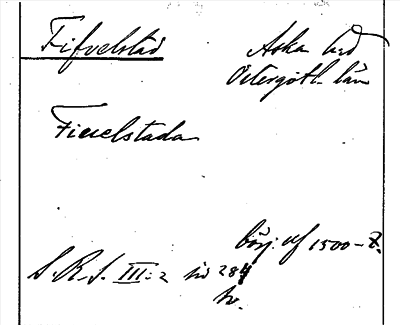 Fifvelstad
Aska hd
Östergötl. län
Fiuelstada
börj. af 1500-t.
S. R. S. III: 2 sid 284